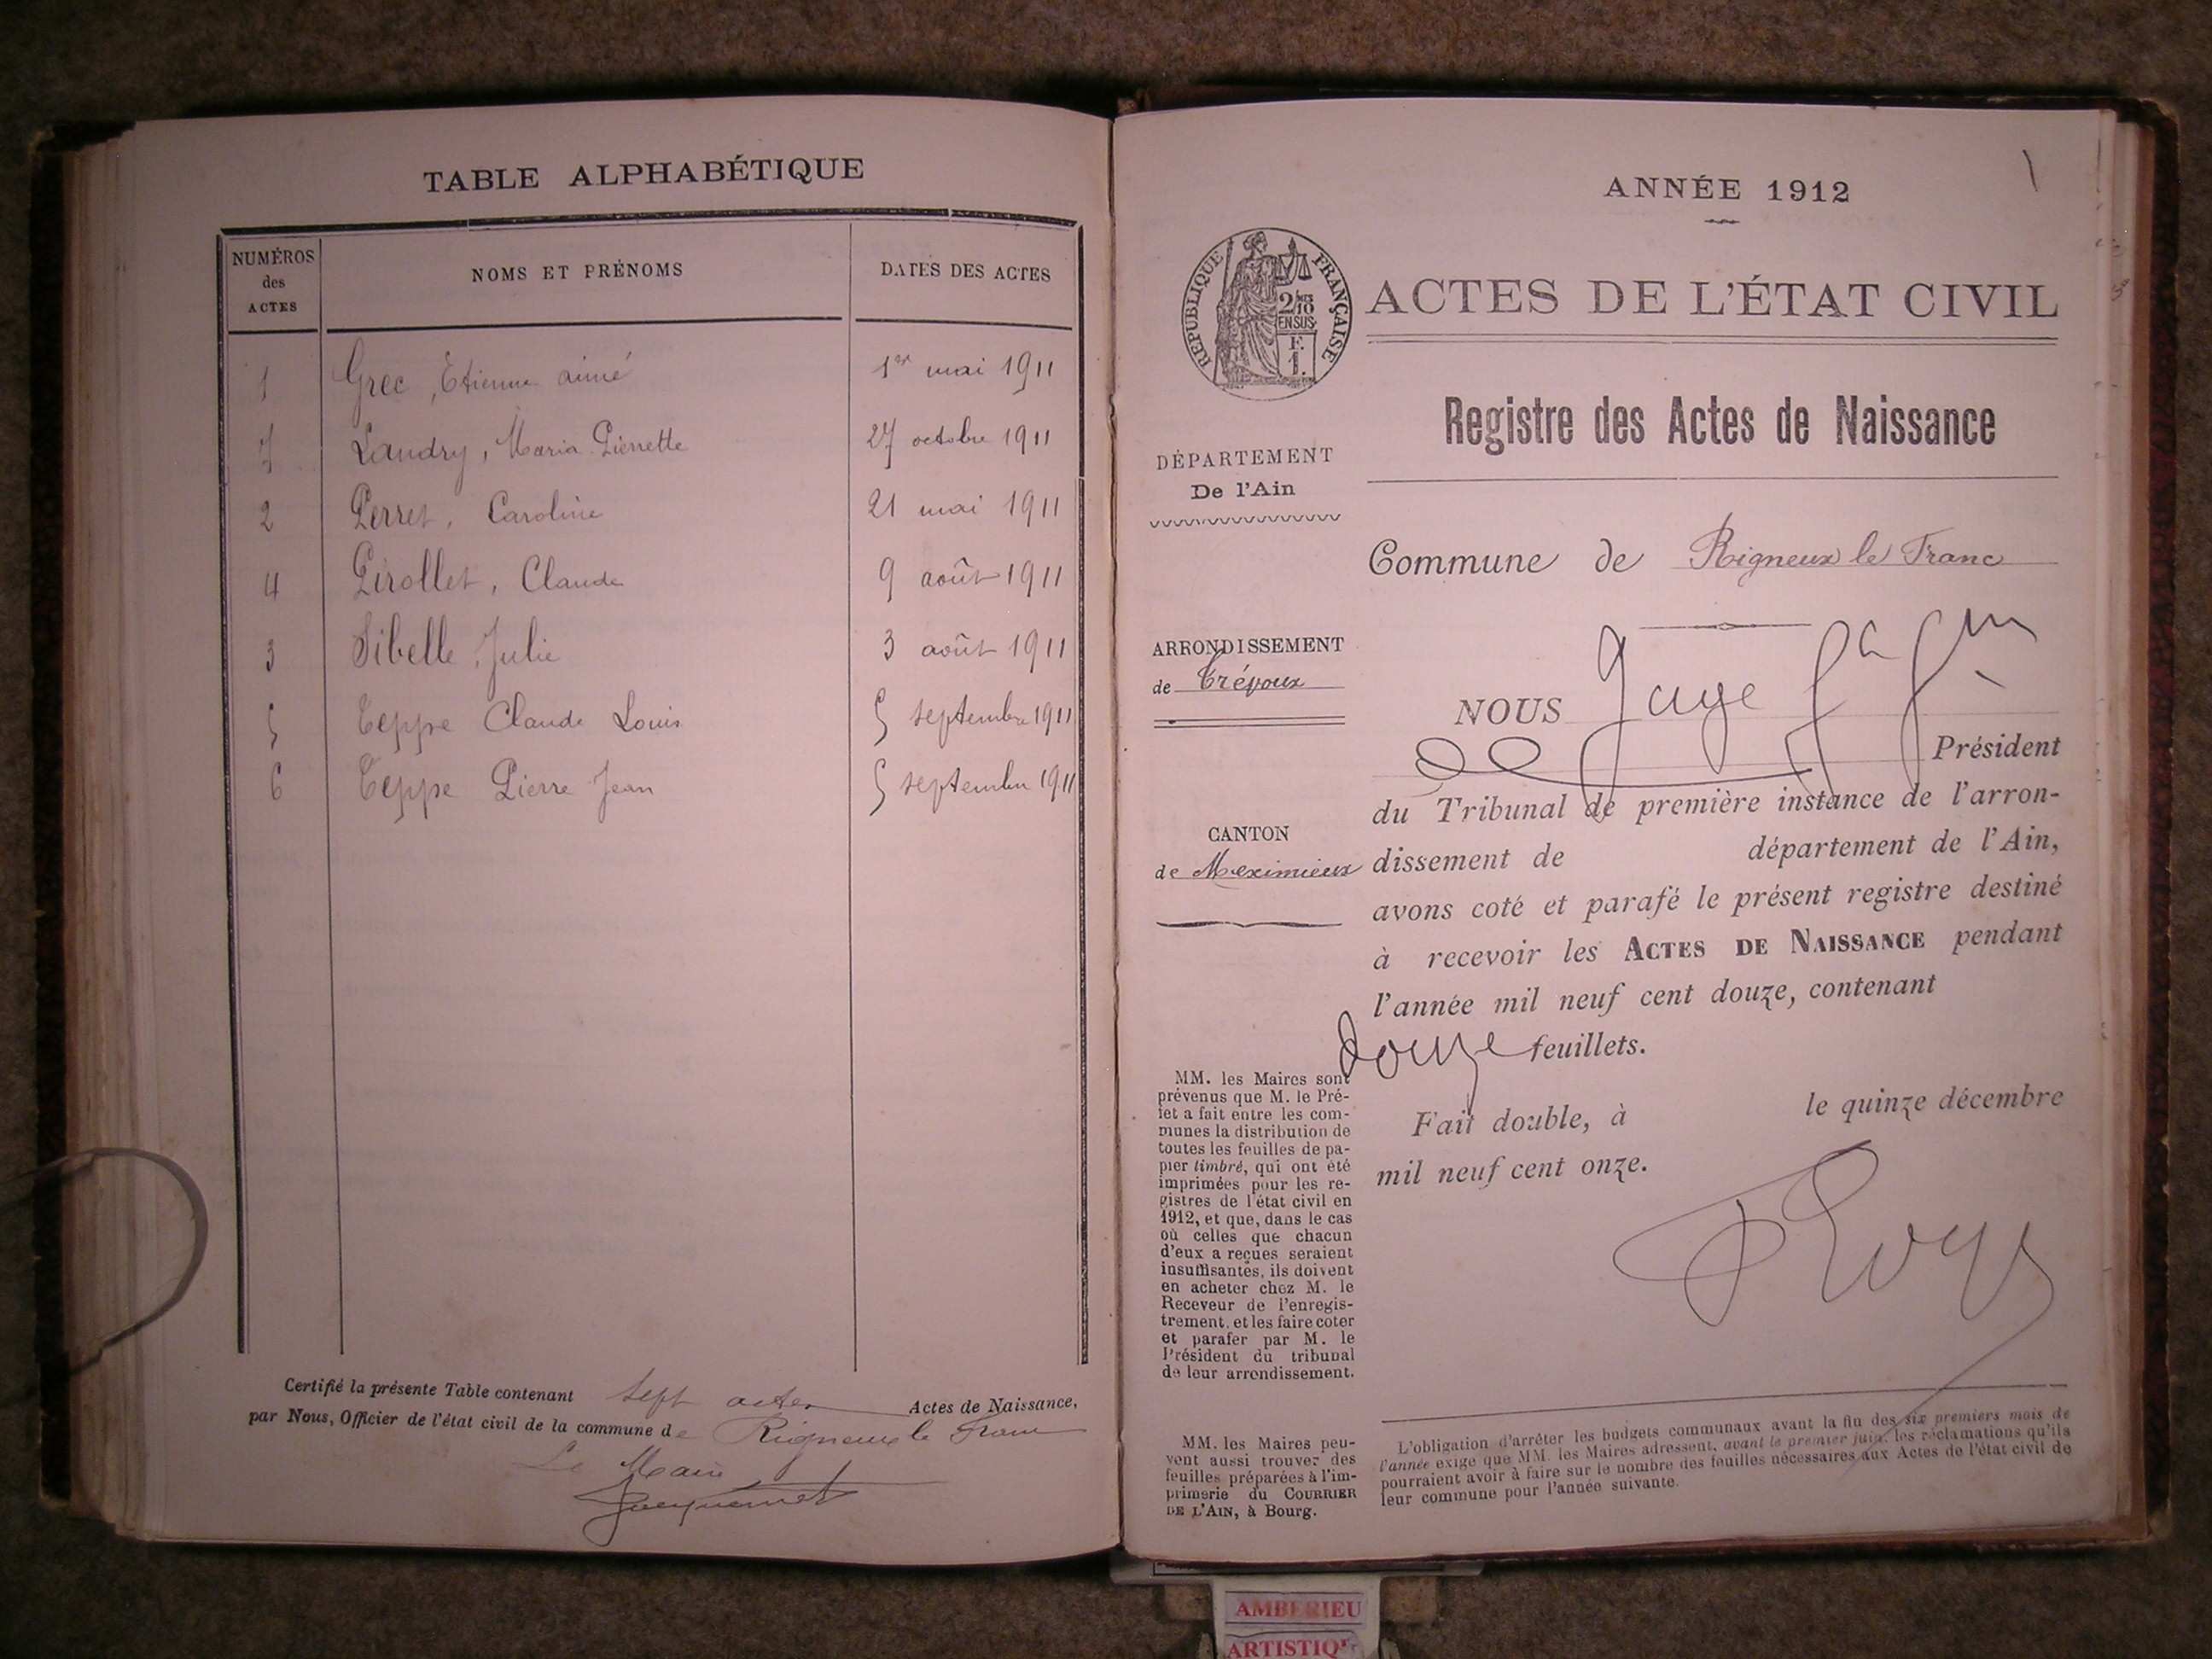 TABLE ALPHABÉTIQUE
NUMÉROS des ACTES
NOMS ET PRÉNOMS
DATES DES ACTES
1 Grec, Etienne aimé 1er mai 1911
7 Landry, Maria Pierrette 27 octobre 1911
2 Perret, Caroline 21 mai 1911
4 Pirollet, Claude 9 août 1911
3 Sibelle, Julie 3 août 1911
5 Teppe Claude Louis 5 septembre 1911
6 Teppe Pierre Jean 5 septembre 1911
Certifié la présente Table contenant sept actes Actes de Naissance,
par Nous, Officier de l'état civil de la commune de Rigneux le Franc
Le Maire
Jacquemet
1
ANNÉE 1912
RÉPUBLIQUE FRANÇAISE
2/10
EN SUS
F.
1.
ACTES DE L'ÉTAT CIVIL
Registre des Actes de Naissance
DÉPARTEMENT
De l'Ain
Commune de Rigneux le Franc
ARRONDISSEMENT
de Trévoux
CANTON
de Meximieux
NOUS
Président
du Tribunal de première instance de l'arron-
dissement de département de l'Ain,
avons coté et parafé le présent registre destiné
à recevoir les ACTES DE NAISSANCE pendant
l'année mil neuf cent douze, contenant
douze feuillets.
Fait double, à le quinze décembre
mil neuf cent onze.
MM. les Maires sont
prévenus que M. le Pré-
fet a fait entre les com-
munes la distribution de
toutes les feuilles de pa-
pier timbré, qui ont été
imprimées pour les re-
gistres de l'état civil en
1912, et que, dans le cas
où celles que chacun
d'eux a reçues seraient
insuffisantes, ils doivent
en acheter chez M. le
Receveur de l'enregis-
trement, et les faire coter
et parafer par M. le
Président du tribunal
de leur arrondissement.
MM. les Maires peu-
vent aussi trouver des
feuilles préparées à l'im-
primerie du COURRIER
DE L'AIN, à Bourg.
L'obligation d'arrêter les budgets communaux avant la fin des six premiers mois de
l'année exige que MM. les Maires adressent, avant le premier juin, les réclamations qu'ils
pourraient avoir à faire sur le nombre des feuilles nécessaires aux Actes de l'état civil de
leur commune pour l'année suivante.
AMBERIEU
ARTISTIQ